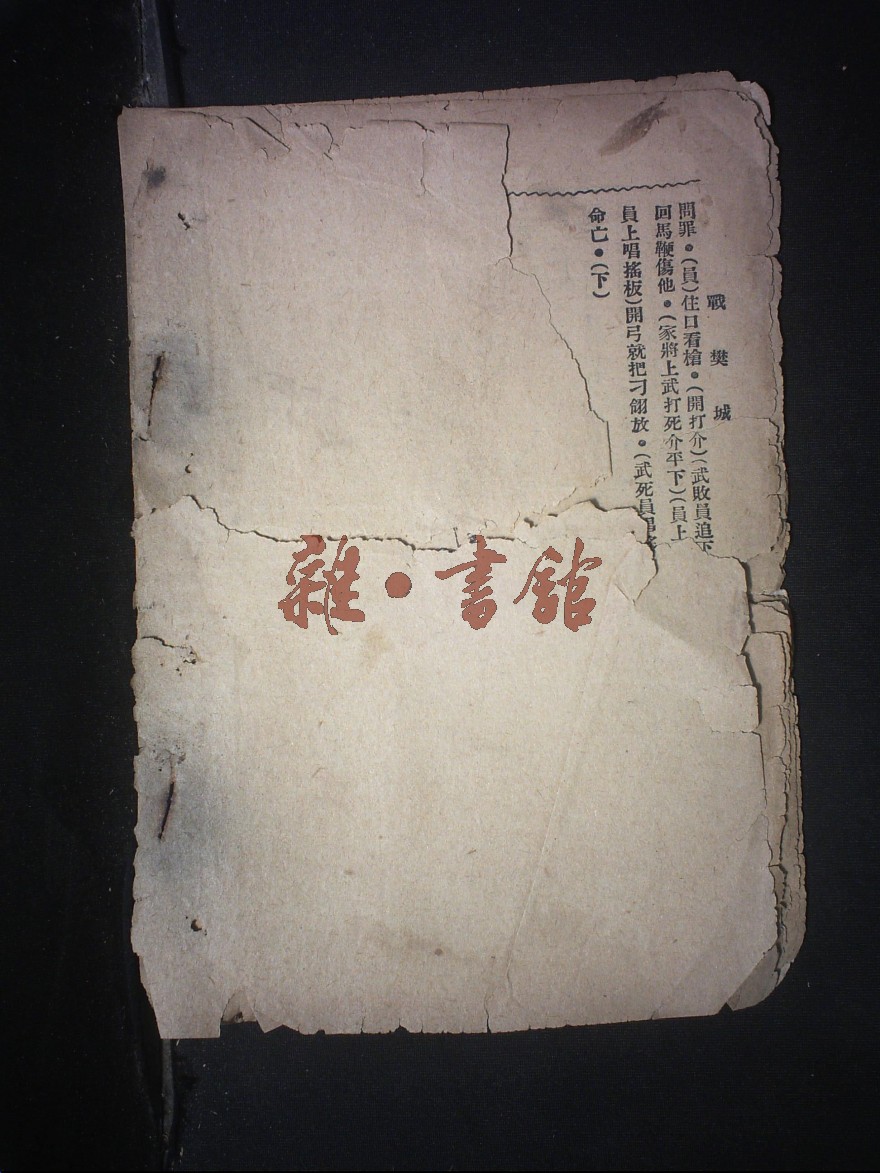 戰樊城
問罪。(員)住口看槍。(開打介)(武敗員追下
回馬鞭傷他。(家將上武打死介平下)(員上
員上唱搖板)開弓就把刁翎放。(武死員唱
命亡。(下)
雜·書館